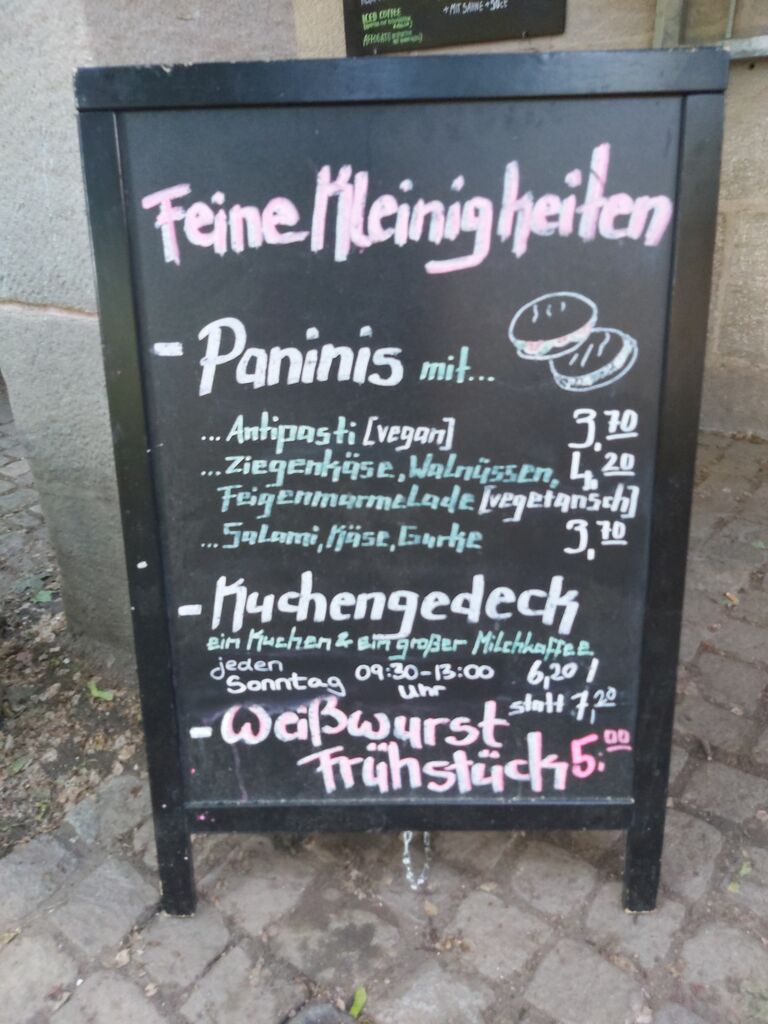 ICED COFFEE
+ MIT SAHNE + 50ct
AFFOGATO
Feine Kleinigkeiten
- Paninis mit...
... Antipasti [vegan] 3,70
... Ziegenkäse, Walnüssen, 4,20
Feigenmarmelade [vegetarisch]
... Salami, Käse, Gurke 3,70
- Kuchengedeck
ein Kuchen & ein großer Milchkaffee
6,20 /
statt 7,20
jeden Sonntag 09:30-13:00 Uhr
- Weißwurst
Frühstück 5.00